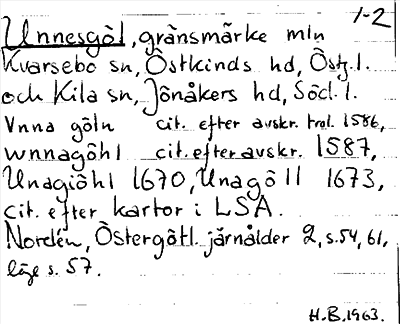 1-2
Unnesgöl, gränsmärke mln
Kvarsebo sn, Östkinds hd, Östg. l.
och Kila sn, Jönåkers hd, Södl. l.
Vnna göln cit. efter avskr. trol. 1586,
wnnagöhl cit. efter avskr. 1587,
Unagiöhl 1670, Unagöll 1673,
cit. efter kartor i LSA.
Nordén, Östergötl. järnålder 2, s. 54, 61,
läge s. 57.
H.B. 1963.